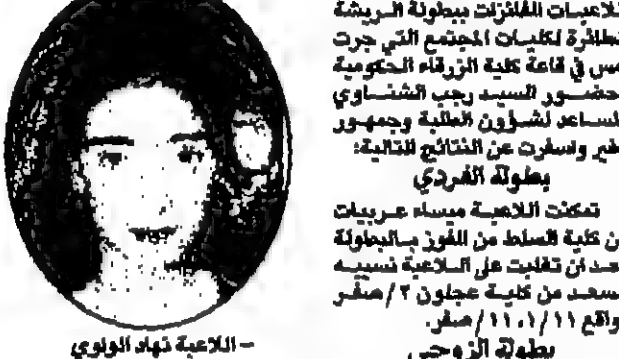 للاعبات الفائزات ببطولة الريشة
لطائرة لكليات المجتمع التي جرت
مس في قاعة كلية الزرقاء الحكومية
حضور السيد رجب الشتاوي
لمساعد لشؤون الطلبة وجمهور
فير واسفرت عن النتائج التالية:
بطولة الفردي
تمكنت اللاعبة ميساء عربيات
ن كلية السلط من الفوز بالبطولة
عد ان تغلبت على اللاعبة نسيبه
سعد من كلية عجلون ٢ / صفر
واقع ١١ / ١، ١١ / صفر.
بطولة الزوجي
- اللاعبة نهاد الولوي